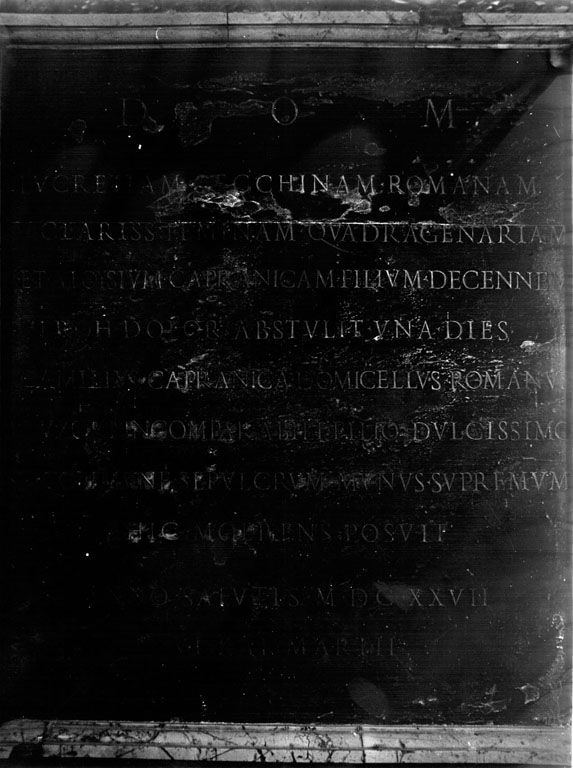 D O M
LVCRETIAM CECCHINAM·ROMANAM
CLARISS FEMINAM QVADRAGENARIAM
ET ALOISIVM CAPRANICAM FILIVM·DECENNEM
DOLOR ABSTVLIT VNA DIES
CAPRANICA DOMICELLVS ROMANVS
INCOMPARABILI FILIO DVLCISSIMO
SEPVLCRVM MVNVS·SVPREMVM
HIC MOERENS POSVIT
ANNO SALVTIS M DC XXVII
MARTII